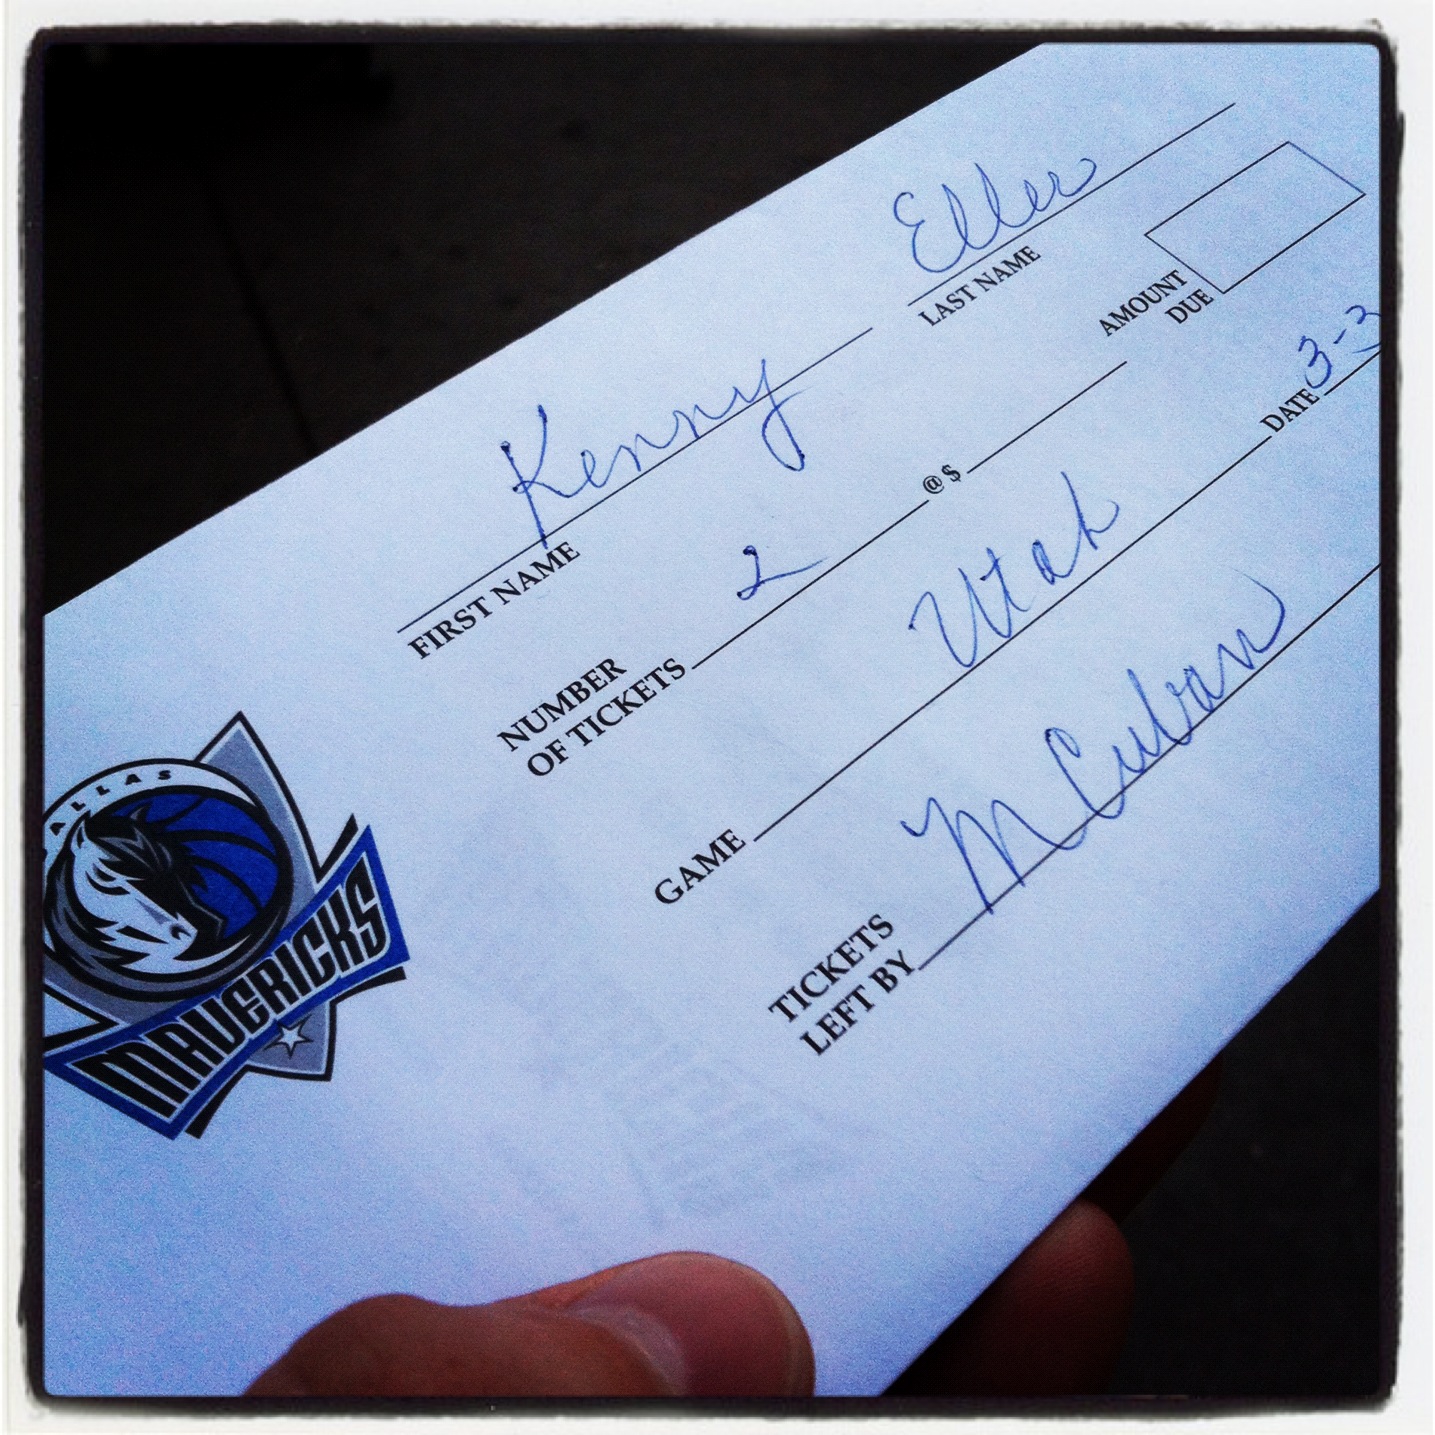 Kenny Eller
FIRST NAME LAST NAME
NUMBER
OF TICKETS 2 @ $
AMOUNT
DUE
GAME Utah DATE 3-3
TICKETS
LEFT BY M Cuban
ALLAS
MAVERICKS